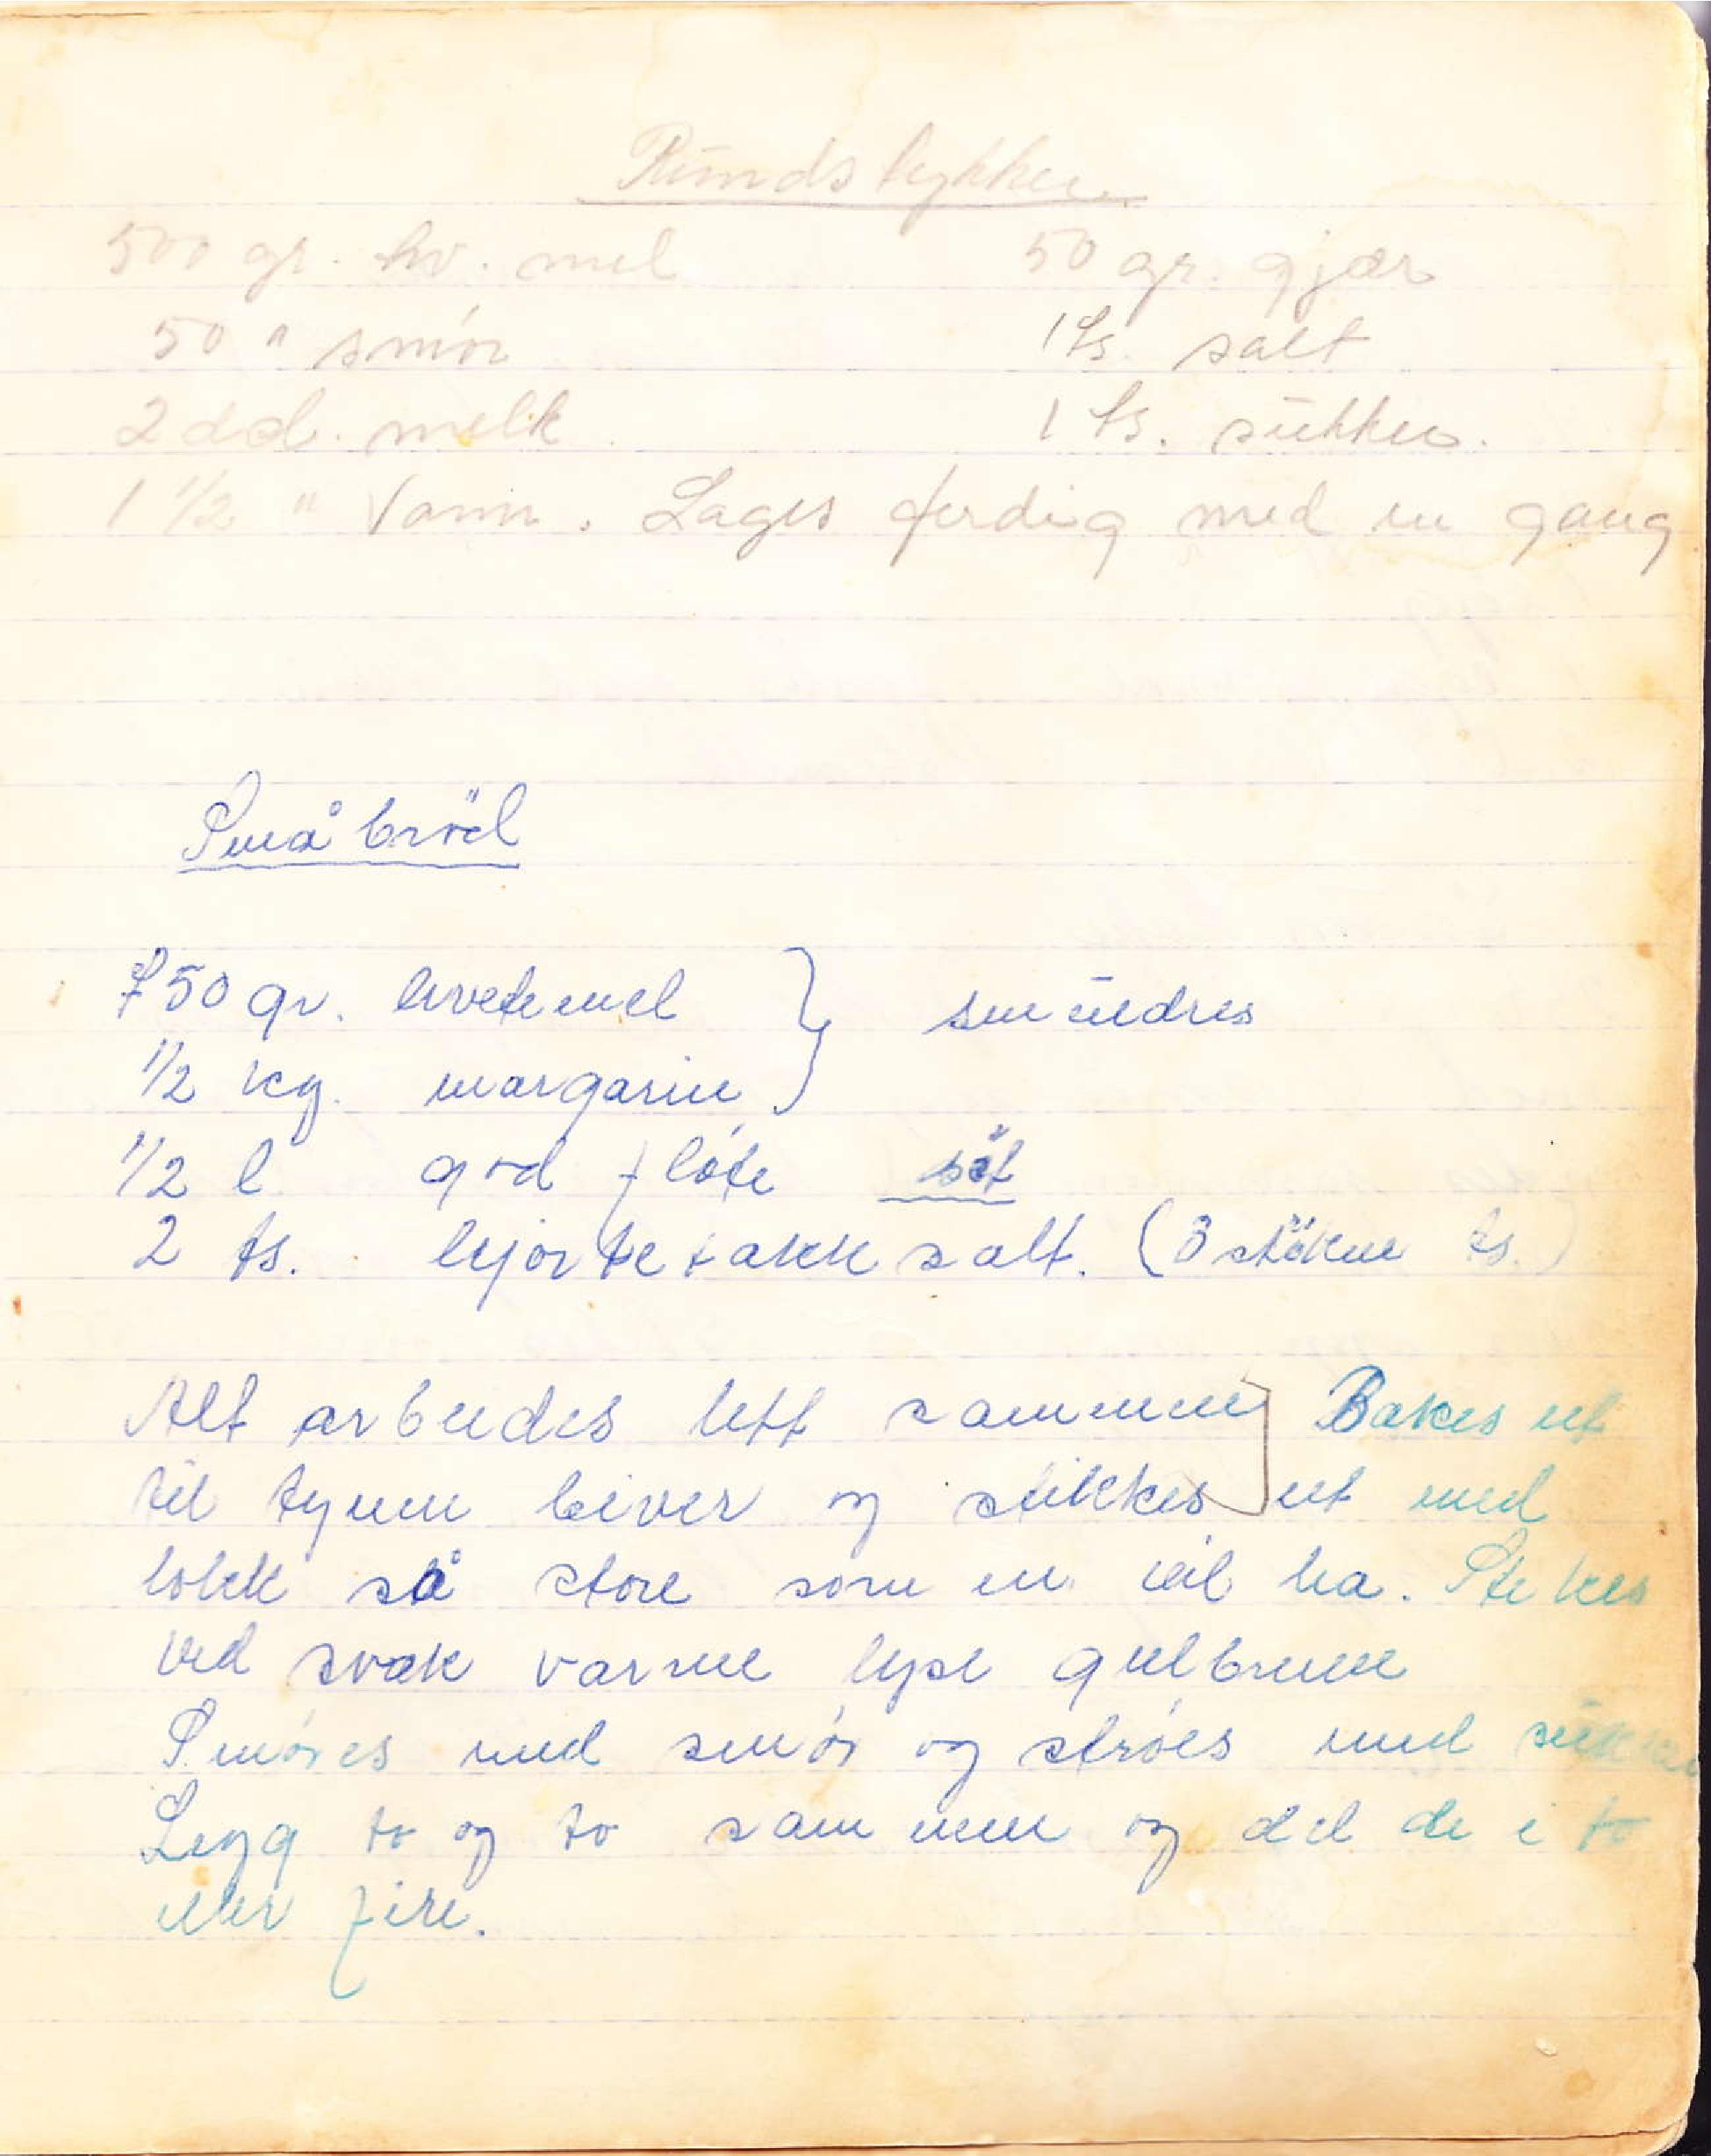 Rundstykker
500 gr. hv. mel 50 gr. gjær
50 " smór 1 ts. salt
2 dl. melk 1 ts. sukker.
1 1/2 " Vann. Lages ferdig med en gang
Små bröd
750 gr. hvetemel } smuldres
1/2 kg. margarin
1/2 l god flóte söt
2 ts. hjortetakksalt. (3 ts.)
Alt arbeides lett sammen Bakes ut
til tynne leiver og stikkes ut med
lokk så store som en vil ha. Stekes
ved svak varme lyse gulbrune
Smóres med smór og stróes med sukker
Legg to og to sammen og del de i to
eller fire.